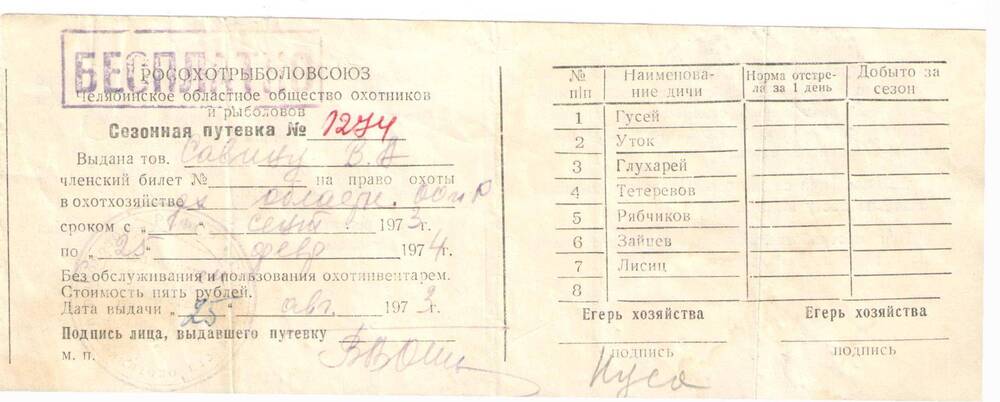 БЕСПЛАТНО
РОСОХОТРЫБОЛОВСОЮЗ
Челябинское областное общество охотников
и рыболовов
Сезонная путевка № 1274
Выдана тов. Савину В.А
членский билет № на право охоты
в охотхозяйство
сроком с „ 1 “ сент. 1973г.
по „ 25 “ февр 1974г.
Без обслуживания и пользования охотинвентарем.
Стоимость пять рублей.
Дата выдачи „ 25 “ авг. 1973г.
Подпись лица, выдавшего путевку
м. п.
№ п|п Наименова-ние дичи Норма отстре-ла за 1 день Добыто за сезон
1 Гусей
2 Уток
3 Глухарей
4 Тетеревов
5 Рябчиков
6 Зайцев
7 Лисиц
8
Егерь хозяйства Егерь хозяйства
подпись подпись